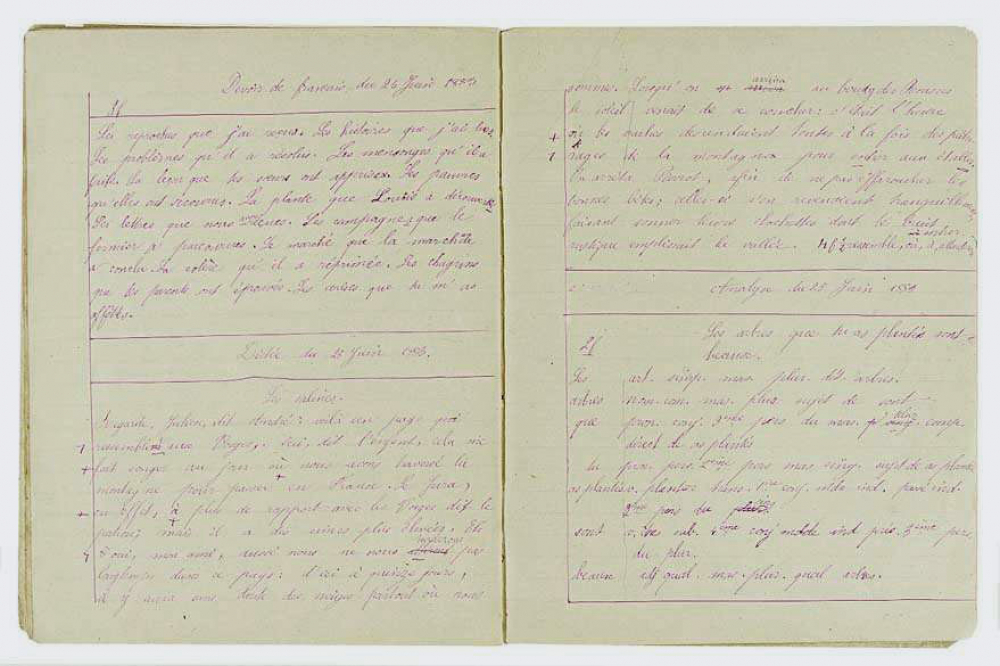 Devoir de français du 26 Juin 1883
Les reproches que j'ai reçus. Les histoires que j'ai lues
Les problèmes qu'il a résolus. Les mensonges qu'il a
faits. La leçon que les sœurs ont apprises. Les pauvres
qu'elles ont secourus. La plante que Louise a découverte
Les lettres que nous avons. Les campagnes que le
fermier a parcourues. Le marché que la marchande
a conclu. La colère qu'il a réprimée. Les chagrins
que les parents ont éprouvés. Les cerises que tu m'as
offertes.
Dictée du 25 Juin 1883.
Regarde, Julien, dit André: voilà un pays qui
ressemble aux Vosges. Oui, dit l'enfant, cela me
fait songer au jour où nous avons traversé la
montagne pour passer en France. Le Jura,
en effet, a plus de rapport avec les Vosges dit le
patron; mais il a des cimes plus élevées. Eh
oui, mon ami, aussi nous ne nous pas
longtemps dans ce pays: d'ici à quinze jours,
il y aura sans doute des neiges partout où nous
sommes. Lorsqu'on arriva au bourg des Rousses
le soleil venait de se coucher: c'était l'heure
où les vaches descendaient toutes à la fois des pâtu
rages de la montagne pour rentrer aux étables.
On arrêta Pierrot, afin de ne pas effaroucher les
bonnes bêtes; celles-ci s'en revenaient tranquillement
faisant sonner leurs clochettes dont le bruit
rustique emplissait la vallée. 4 f ressemble, où, à,
Analyse du 25 Juin 1883
2 f Les arbres que tu as plantés sont
beaux.
Les art. sing. mas. plur. dét. arbres.
arbres nom com. mas. plur. sujet de sont
que pron. conj. 3ème pers du mas. plur comp.
direct de as plantés
tu pron. pers. 2ème pers mas sing. sujet de as plantés
as plantés v. planter trans. 1re conj. mode ind. passé ind.
2ème pers du sing
sont v. être sub. 4ème conj mode ind prés. 3ème pers.
du plur.
beaux adj qual. mas. plur. qual arbres.